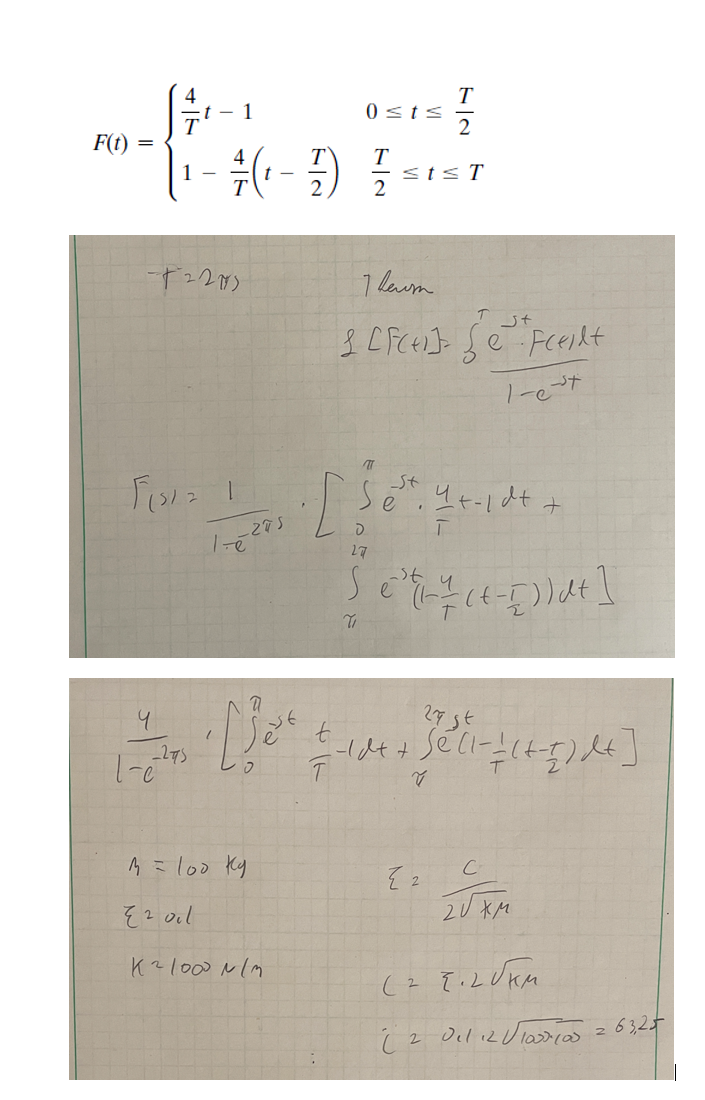 F(t) = { 4/T t − 1    0 ≤ t ≤ T/2
1 − 4/T (t − T/2)    T/2 ≤ t ≤ T
T = 2πs
£ [F(t)] = ∫₀ᵀ e^-st · F(t)dt / 1-e^-st
F(s) = 1 / 1-e^-2πs · [ ∫₀^π e^-st · 4/T t-1 dt +
∫_π^2π e^-st (1-4/T (t-T/2)) dt ]
4 / 1-e^-2πs · [ ∫₀^π e^-st t/T -1 dt + ∫_π^2π e^st (1-1/T (t-T/2) dt ]
M = 100 Kg    ξ = C / 2√KM
ξ = 0,1
K = 1000 N/m    C = ξ.2√KM
C = 0,1.2√1000·100 = 63,25